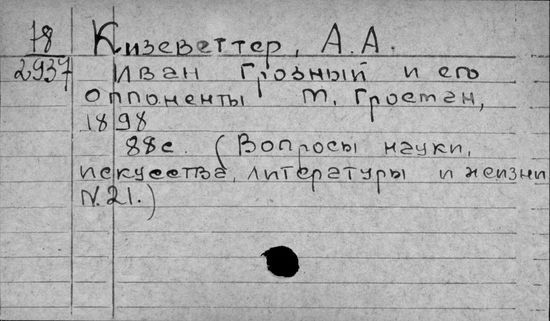 18 Кизеветтер, А.А.
2937 Иван Грозный и его
оппоненты М, Гросман,
1898
88с. (Вопросы науки,
искусства, литературы и жизни
N.21.)